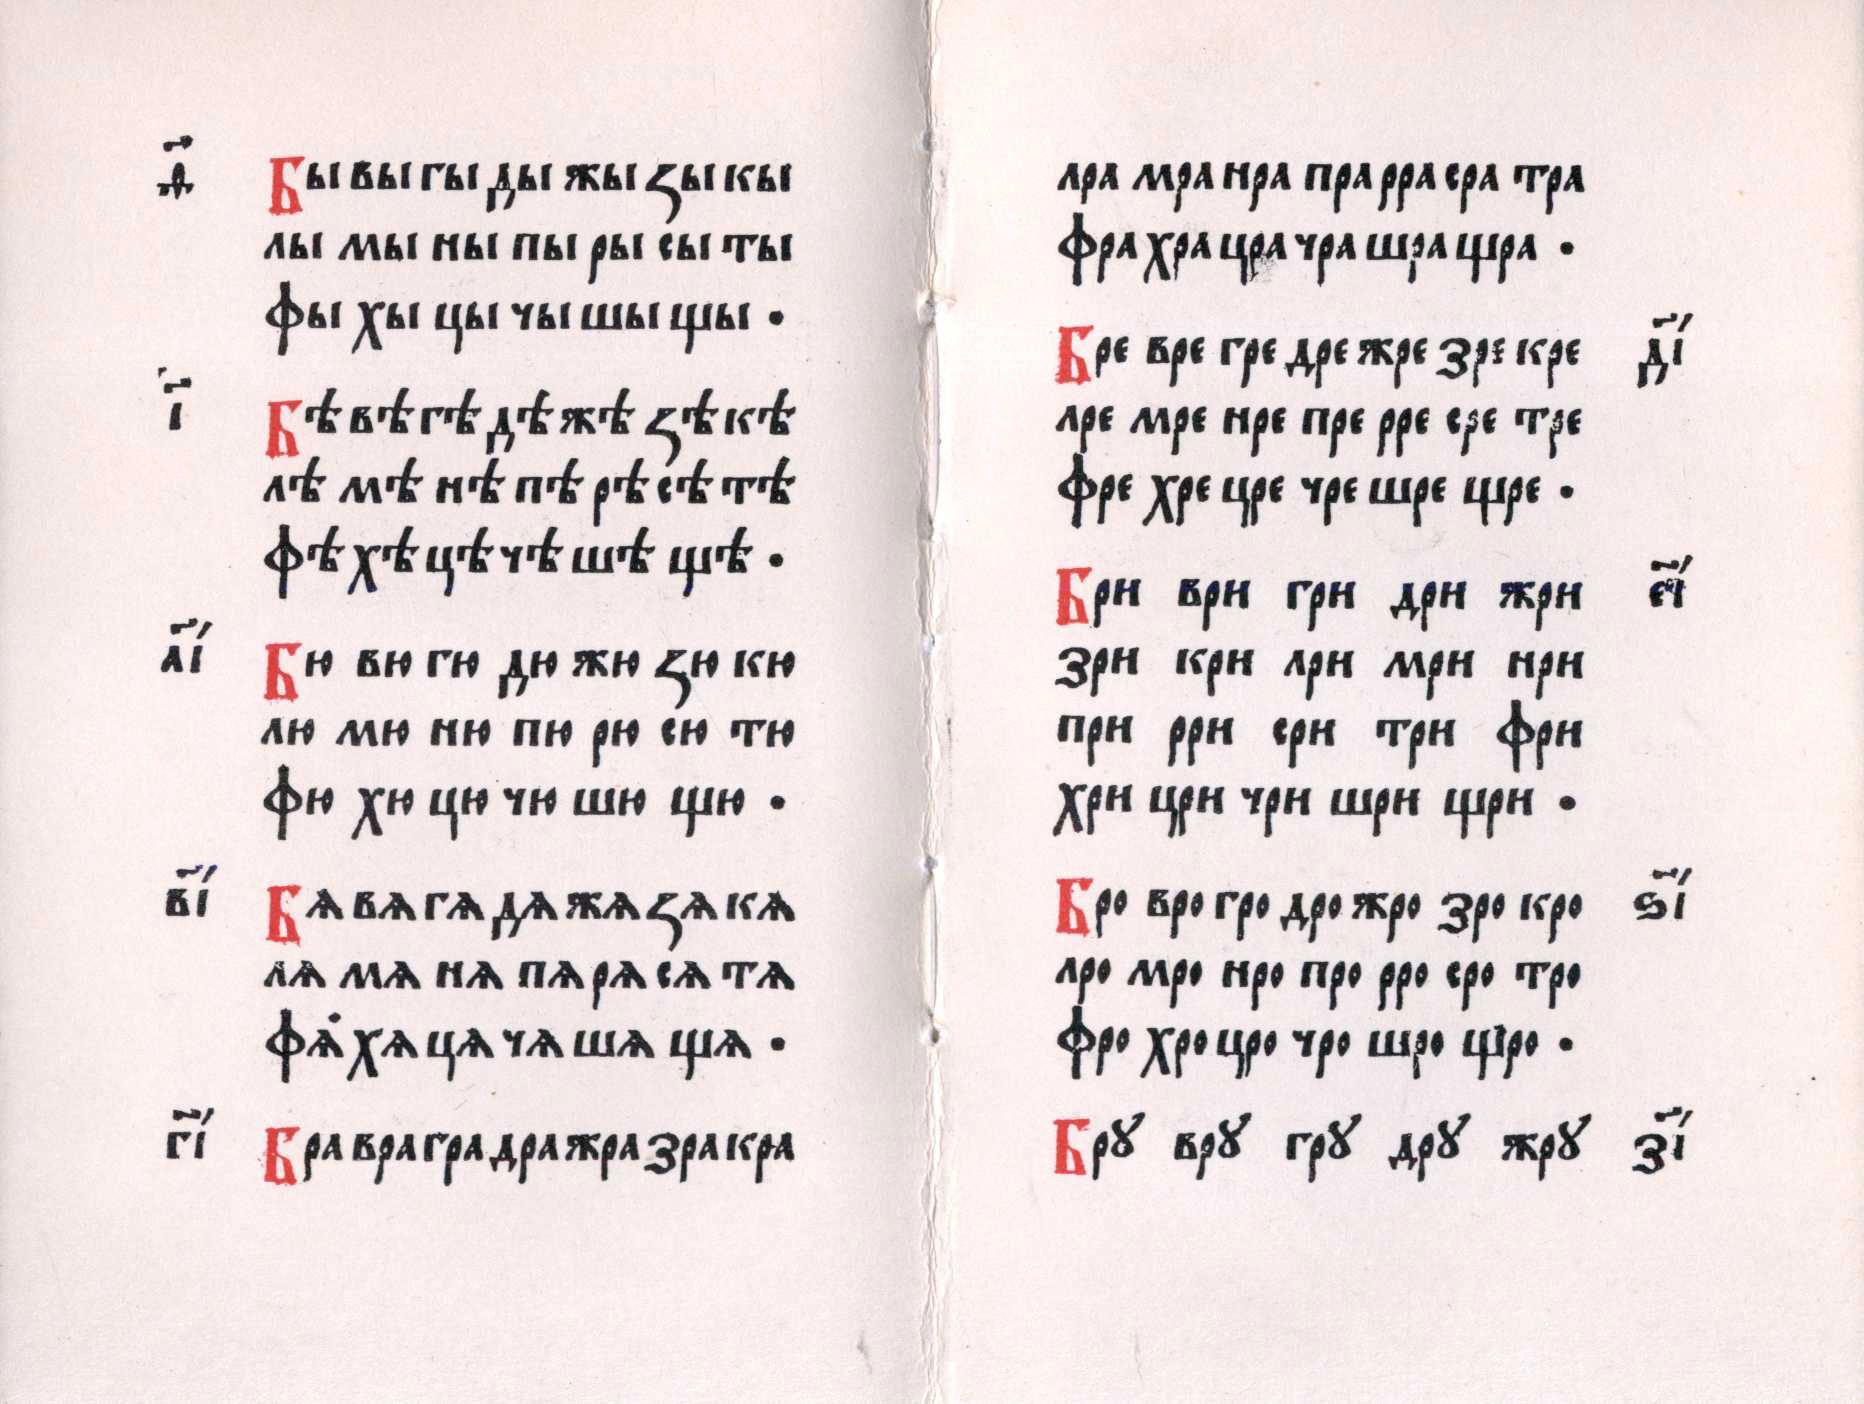 ѳ҃ Бы вы гы ды жы ꙁы кы
лы мы ны пы ры сы ты
фы хы цы чы шы щы •
і҃ Бѣ вѣ гѣ дѣ жѣ ꙁѣ кѣ
лѣ мѣ нѣ пѣ рѣ сѣ тѣ
фѣ хѣ цѣ чѣ шѣ щѣ •
а҃і Бю вю гю дю жю ꙁю кю
лю мю ню пю рю сю тю
фю хю цю чю шю щю •
в҃і Бѧ вѧ гѧ дѧ жѧ ꙁѧ кѧ
лѧ мѧ нѧ пѧ рѧ сѧ тѧ
фѧ хѧ цѧ чѧ шѧ щѧ •
г҃і Бра вра гра дра жра зра кра
лра мра нра пра рра сра тра
фра хра цра чра шра щра •
Бре вре гре дре жре зре кре д҃і
лре мре нре пре рре сре тре
фре хре цре чре шре щре •
Бри ври гри дри жри є҃і
зри кри лри мри нри
при рри сри три фри
хри цри чри шри щри •
Бро вро гро дро жро зро кро ѕ҃і
лро мро нро про рро сро тро
фро хро цро чро шро щро •
Брꙋ врꙋ грꙋ дрꙋ жрꙋ з҃і